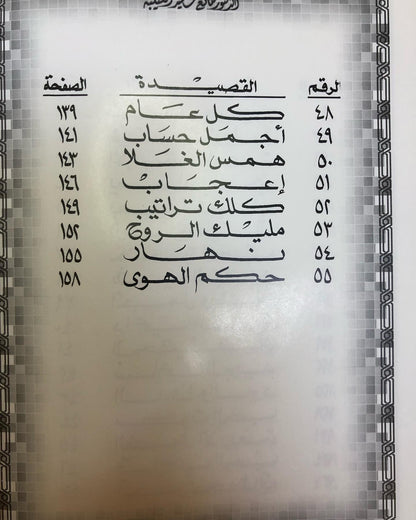 الرقم القصيدة الصفحة
٤٨ كل عام ١٣٩
٤٩ أجمل حساب ١٤١
٥٠ همس الغلا ١٤٣
٥١ إعجاب ١٤٦
٥٢ كلك تراتيب ١٤٩
٥٣ مليك الروح ١٥٢
٥٤ نهار ١٥٥
٥٥ حكم الهوى ١٥٨